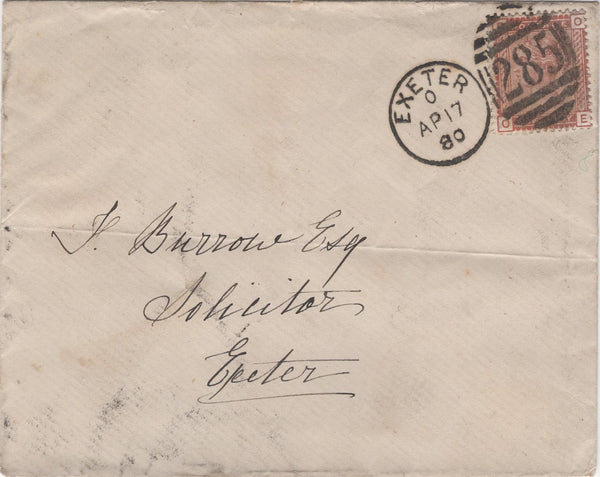 EXETER
O
AP 17
80
285
O
E
O
E
J. Burrow Esq
Solicitor
Exeter